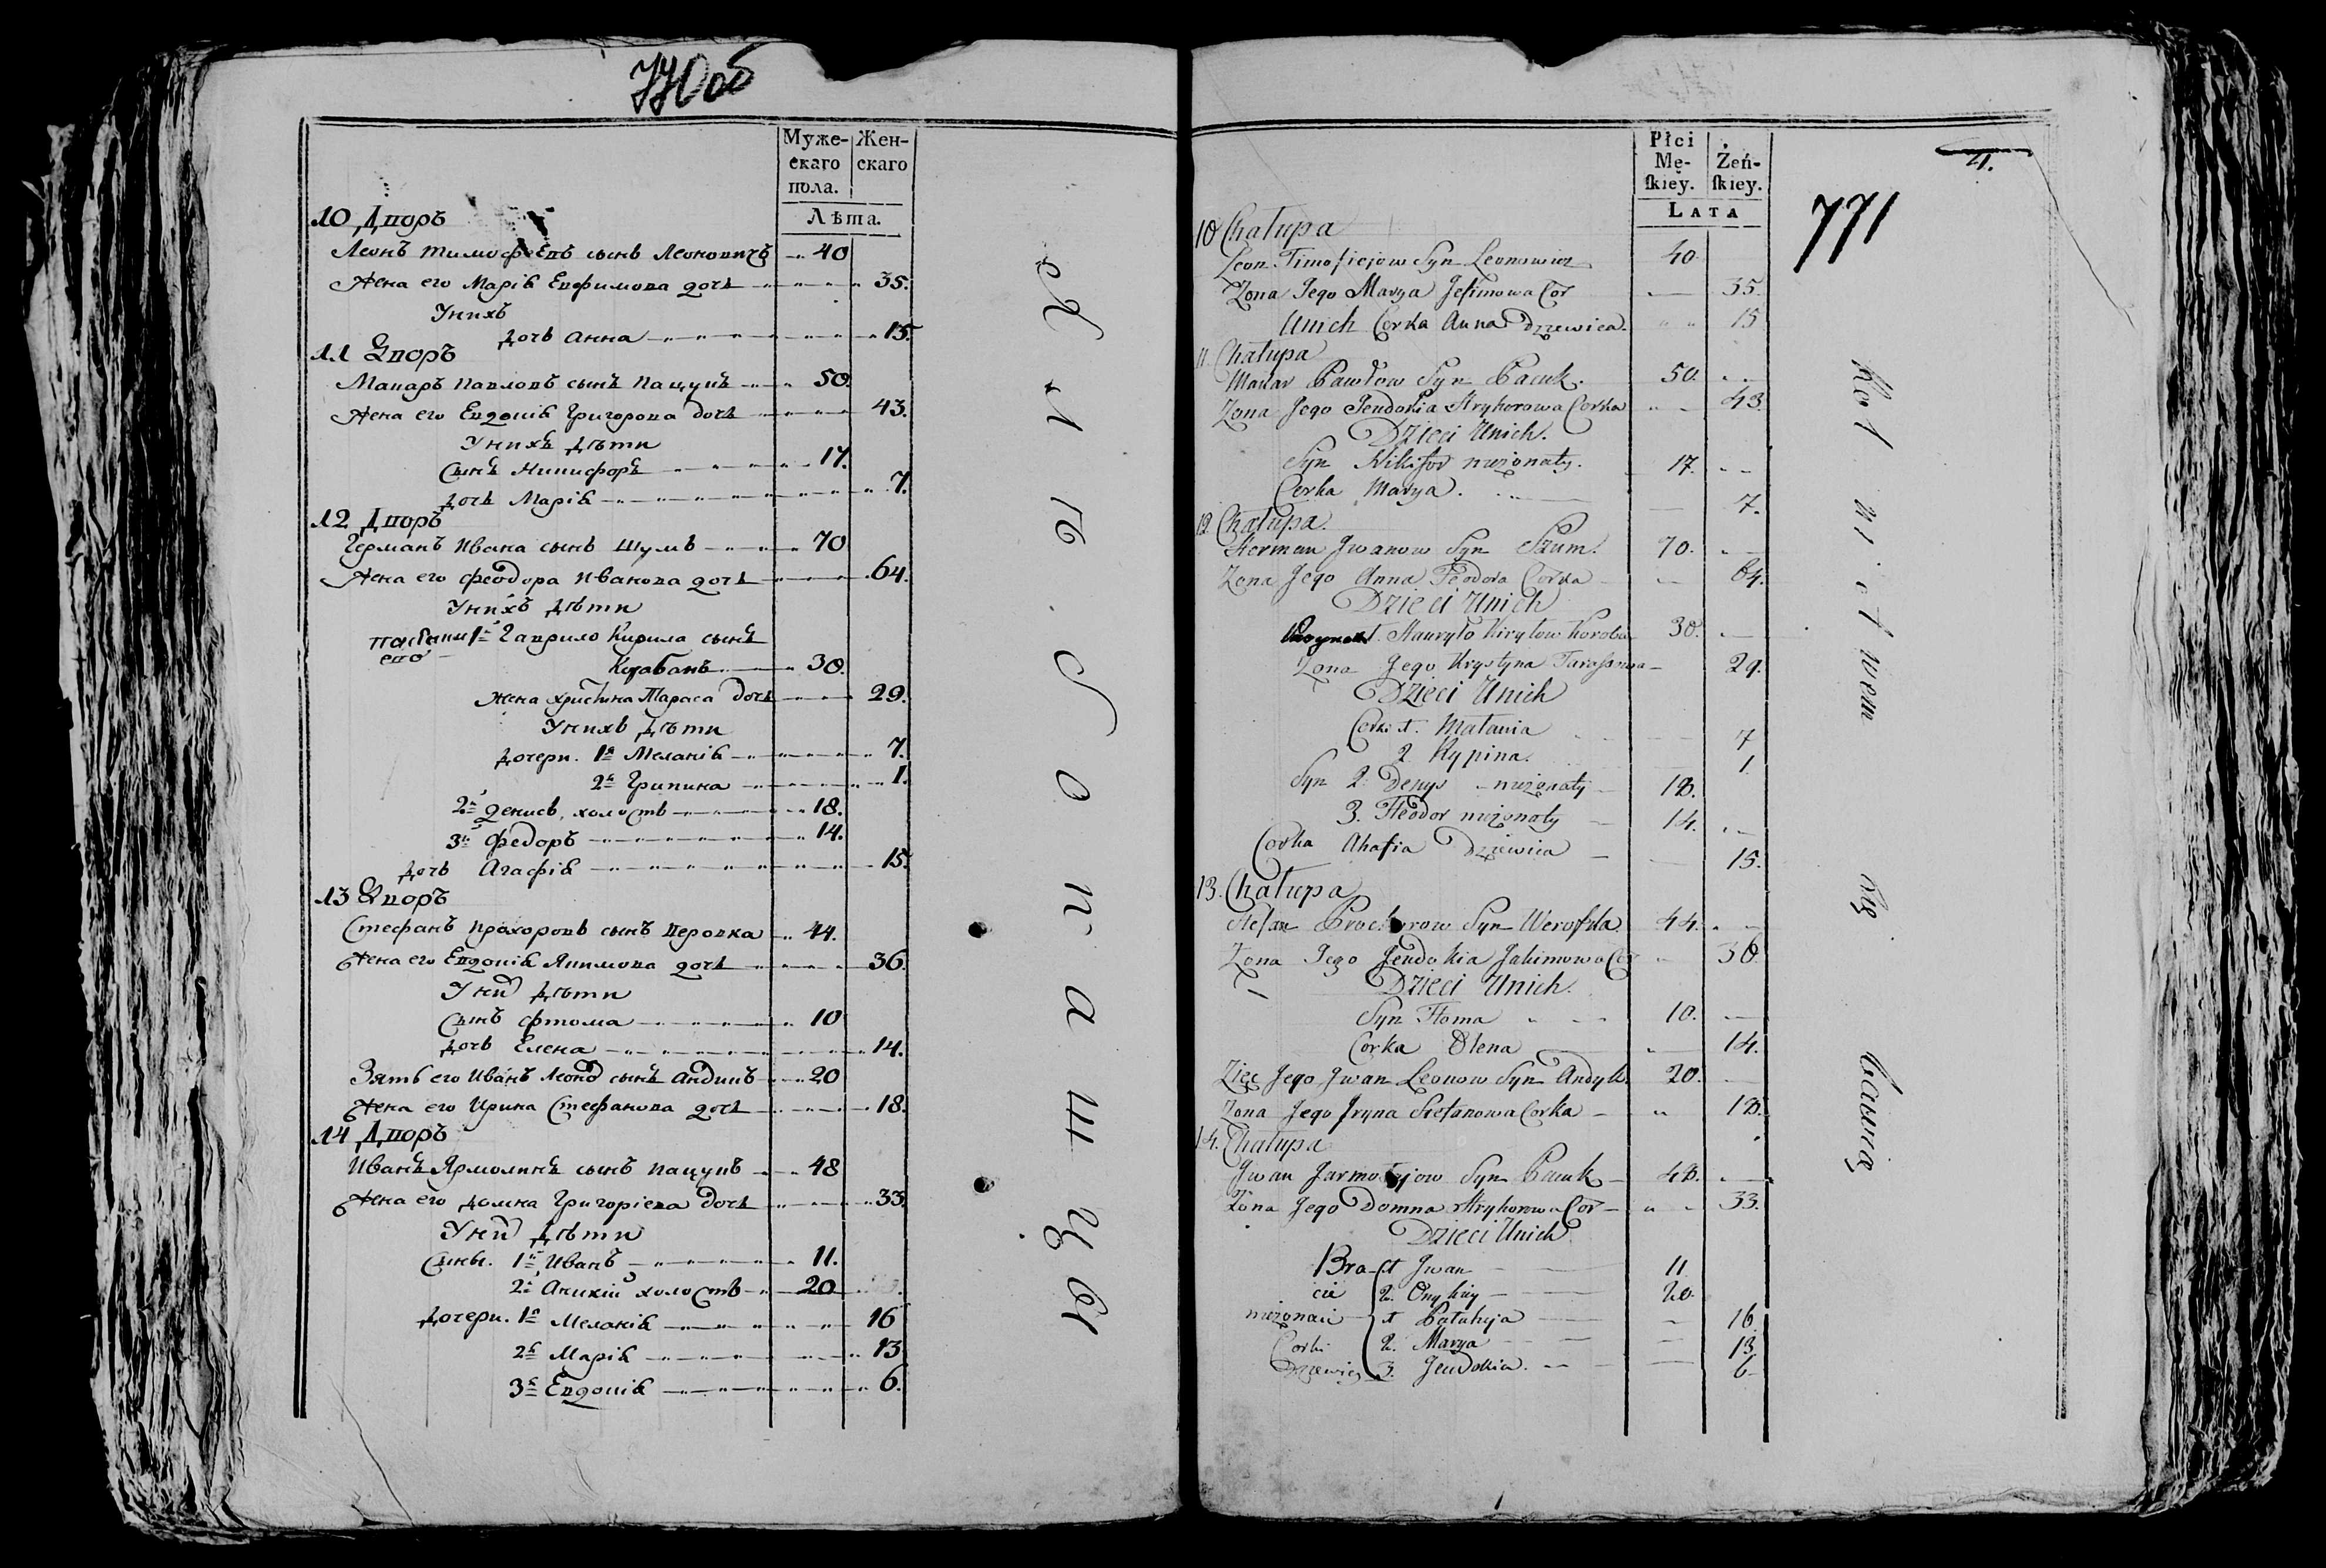 770об
Муже-
скаго
пола.
Жен-
скаго
Лѣта.
10 Дворъ
Леонъ Тимофѣевъ сынъ Леоновичъ 40
Жена его Марія Евфимова дочь 35.
У нихъ
дочь Анна 15.
11 Дворъ
Макаръ Павловъ сынъ Пацукъ 50.
Жена его Евдокія Григорова дочь 43.
У нихъ дѣти
Сынъ Никифоръ 17.
дочь Марія 7.
12 Дворъ
Германъ Ивана сынъ Шумъ 70
Жена его Феодора Иванова дочь 64.
У нихъ дѣти
1й Гаврило Кирила сынъ
Корабанъ 30.
жена Христина Тараса дочь 29.
У нихъ дѣти
дочери. 1я Меланія 7.
2я Грипина 1.
2й Денисъ, холостъ 18.
3й Федоръ 14.
дочь Агафія 15.
13 Дворъ
Стефанъ Прохоровъ сынъ Веровка 44.
Жена его Евдокія Якимова дочь 36.
У них дѣти
Сынъ Фтома 10
дочь Елена 14.
Зять его Иванъ Леонов сынъ Андикъ 20
Жена его Ирина Стефанова дочь 18.
14 Дворъ
Иванъ Ярмолинъ сынъ Пацукъ 48
Жена его Домна Григоріева дочь 33.
У них дѣти
Сыны. 1й Иванъ 11.
2й Аникій холостъ 20
дочери. 1я Меланія 16
2я Марія 13
3я Евдокія 6.
Płci
Mę-
ſkiey.
Żeń-
ſkiey.
LATA
4.
771
10 Chałupa
Leon Timofiejow Syn Leonowicz 40
Zona Jego Marya Jefimowa Cor 35.
Unich Corka Anna Dziewica. 15
11. Chałupa
Makar Pawłow Syn Pacuk. 50.
Zona Jego Jewdokia Hryhorowa Corka 43
Dzieci Unich.
Syn Nikifor nieżonaty. 17.
Corka Marya. 7.
12. Chałupa.
Herman Jwanow Syn Szum. 70.
Zona Jego Anna Teodora Corka 64.
Dzieci Unich
1. Hauryło Kiryłow Koroban 30.
Zona Jego Krystyna Tarasowa 29.
Dzieci Unich
Corki 1. Małania 7
2 Hypina. 1
Syn 2. Denys nieżonaty 18.
3. Fteodor nieżonaty 14.
Corka Ahafia Dziewica 15.
13. Chałupa
Stefan Prochorow Syn Werofka 44.
Zona Jego Jewdokia Jakimowa Cor 36
Dzieci Unich.
Syn Ftoma 10.
Corka Olena 14.
Zięc Jego Jwan Leonow Syn Andyk. 20.
Zona Jego Jryna Stefanowa Corka 18.
14. Chałupa
Jwan Jarmołyjow Syn Pacuk 48.
Zona Jego Domna Hryhorowa Cor 33.
Dzieci Unich
Bra- 1 Jwan 11
cia 2. Onykiy 20.
nieżonaci 1 Pałahija 16
Corki 2. Marya 13
Dziewicy 3. Jewdokia. 6